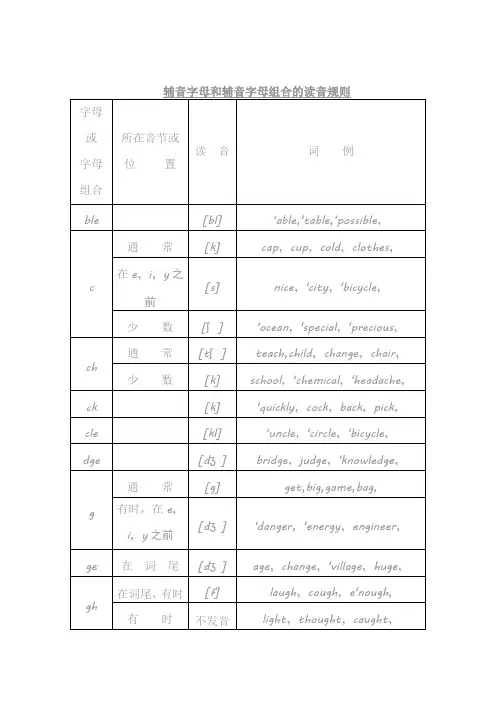 辅音字母和辅音字母组合的读音规则
字母
或
字母
组合
所在音节或
位 置
读 音
词 例
ble [bl] 'able,'table,'possible,
c
通 常 [k] cap, cup, cold, clothes,
在e, i, y之
前
[s] nice, 'city, 'bicycle,
少 数 [ʃ ] 'ocean, 'special, 'precious,
ch
通 常 [tʃ ] teach,child, change, chair,
少 数 [k] school, 'chemical, 'headache,
ck [k] 'quickly, cock, back, pick,
cle [kl] 'uncle, 'circle, 'bicycle,
dge [dʒ ] bridge, judge, 'knowledge,
g
通 常 [g] get,big,game,bag,
有时，在e,
i, y之前
[dʒ ] 'danger, 'energy, engineer,
ge 在 词 尾 [dʒ ] age, change, 'village, huge,
gh
在词尾，有时 [f] laugh, cough, e'nough,
有 时 不发音 light, thought, caught,